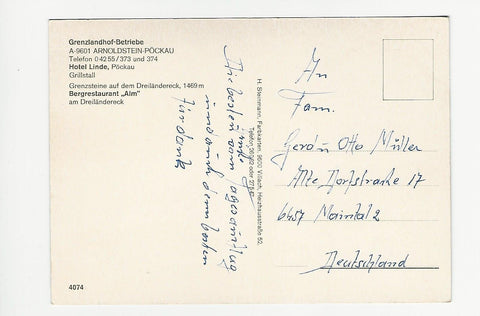 Grenzlandhof-Betriebe
A-9601 ARNOLDSTEIN-PÖCKAU
Telefon 0 42 55 / 373 und 374
Hotel Linde, Pöckau
Grillstall
Grenzsteine auf dem Dreiländereck, 1469 m
Bergrestaurant „Alm"
am Dreiländereck
Die besten
vom
und auch dem
für
4074
H. Steinmann, Farbkarten, 9500 Villach,
An
Fam.
Gerd u Otto Müller
Alte Dorfstraße 17
6457 Maintal 2
Deutschland